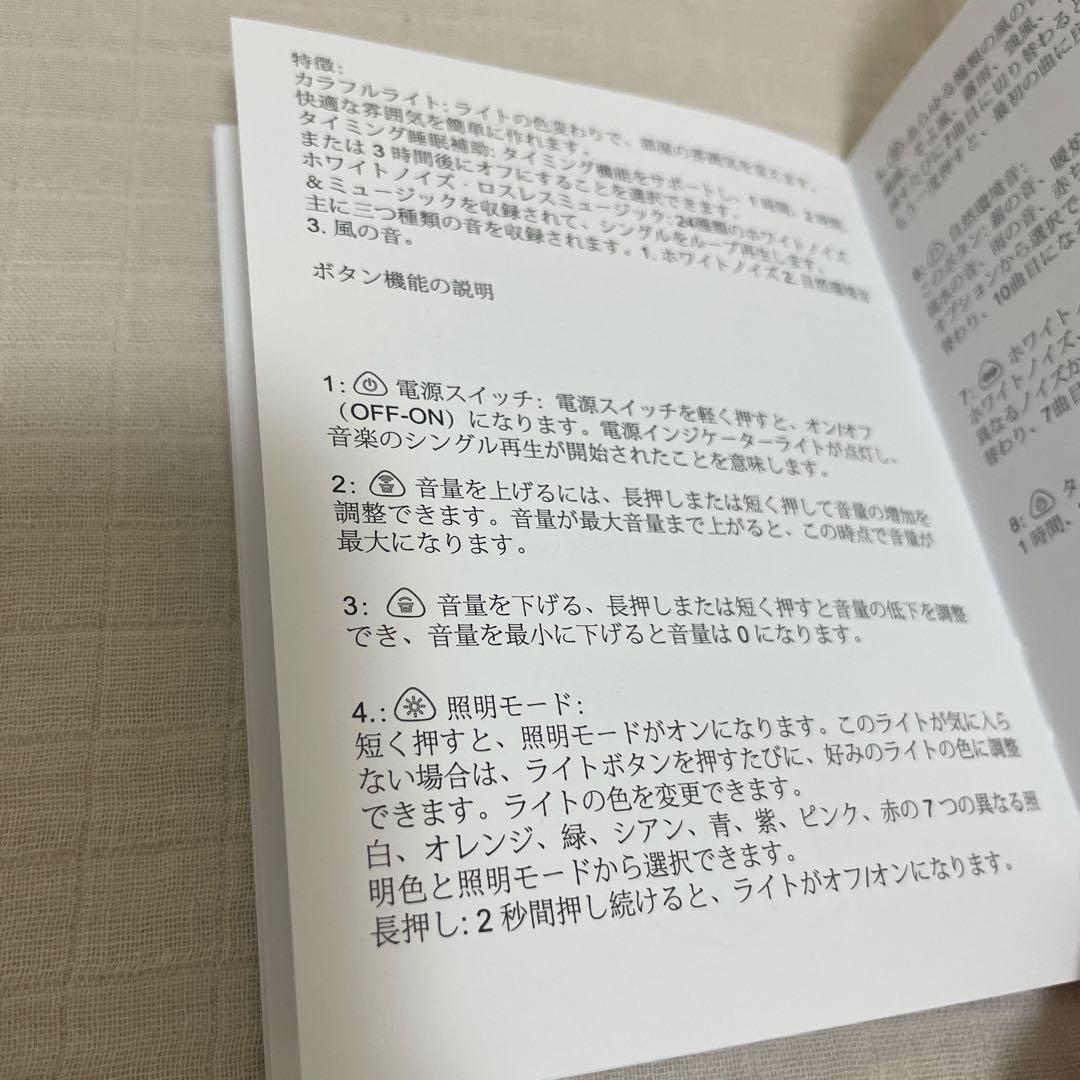 特徴:
カラフルライト: ライトの色変わりで、部屋の雰囲気を変えます。
快適な雰囲気を簡単に作れます。
タイミング睡眠補助: タイミング機能をサポートし、1 時間、2 時間、
または 3 時間後にオフにすることを選択できます。
ホワイトノイズ・ロスレスミュージック: 24種類のホワイトノイズ
&ミュージックを収録されて、シングルをループ再生します。
主に三つ種類の音を収録されます。1. ホワイトノイズ2. 自然環境音
3. 風の音。
ボタン機能の説明
1: 電源スイッチ: 電源スイッチを軽く押すと、オン/オフ
（OFF-ON）になります。電源インジケーターライトが点灯し、
音楽のシングル再生が開始されたことを意味します。
2: 音量を上げるには、長押しまたは短く押して音量の増加を
調整できます。音量が最大音量まで上がると、この時点で音量が
最大になります。
3: 音量を下げる、長押しまたは短く押すと音量の低下を調整
でき、音量を最小に下げると音量は 0 になります。
4.: 照明モード:
短く押すと、照明モードがオンになります。このライトが気に入ら
ない場合は、ライトボタンを押すたびに、好みのライトの色に調整
できます。ライトの色を変更できます。
白、オレンジ、緑、シアン、青、紫、ピンク、赤の 7 つの異なる照
明色と照明モードから選択できます。
長押し: 2 秒間押し続けると、ライトがオフ/オンになります。
自然環境音:
このボタン:
オプションから選択で
替わり、10曲目にな
7: ホワイト
ホワイトノイズ
異なるノイズが
替わり、7曲目
8: タ
1 時間、